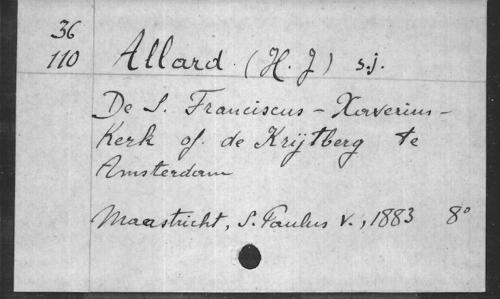 36
110 Allard. (H. J) s.j.
De S. Franciscus - Xaverius-
Kerk of de Krijtberg te
Amsterdam
Maastricht, S. Paulus V., 1883 8°